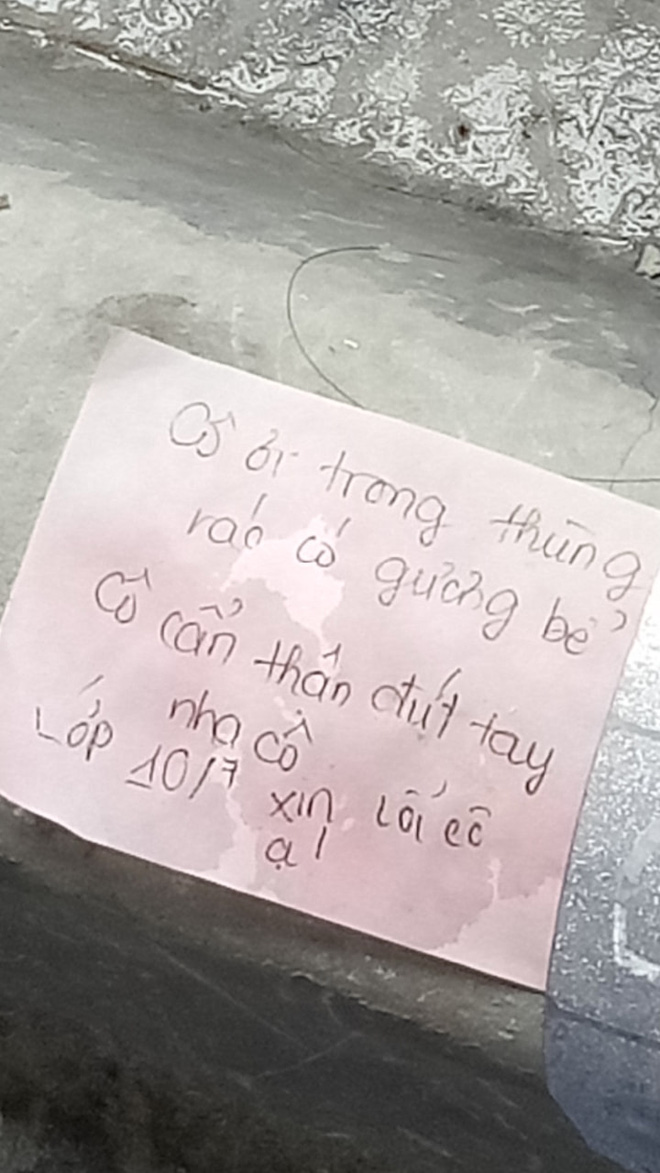 Cô ơi trong thùng
rác có gương bể
Cô cẩn thận đứt tay
nha cô
Lớp 10/7 xin lỗi cô
ạ!